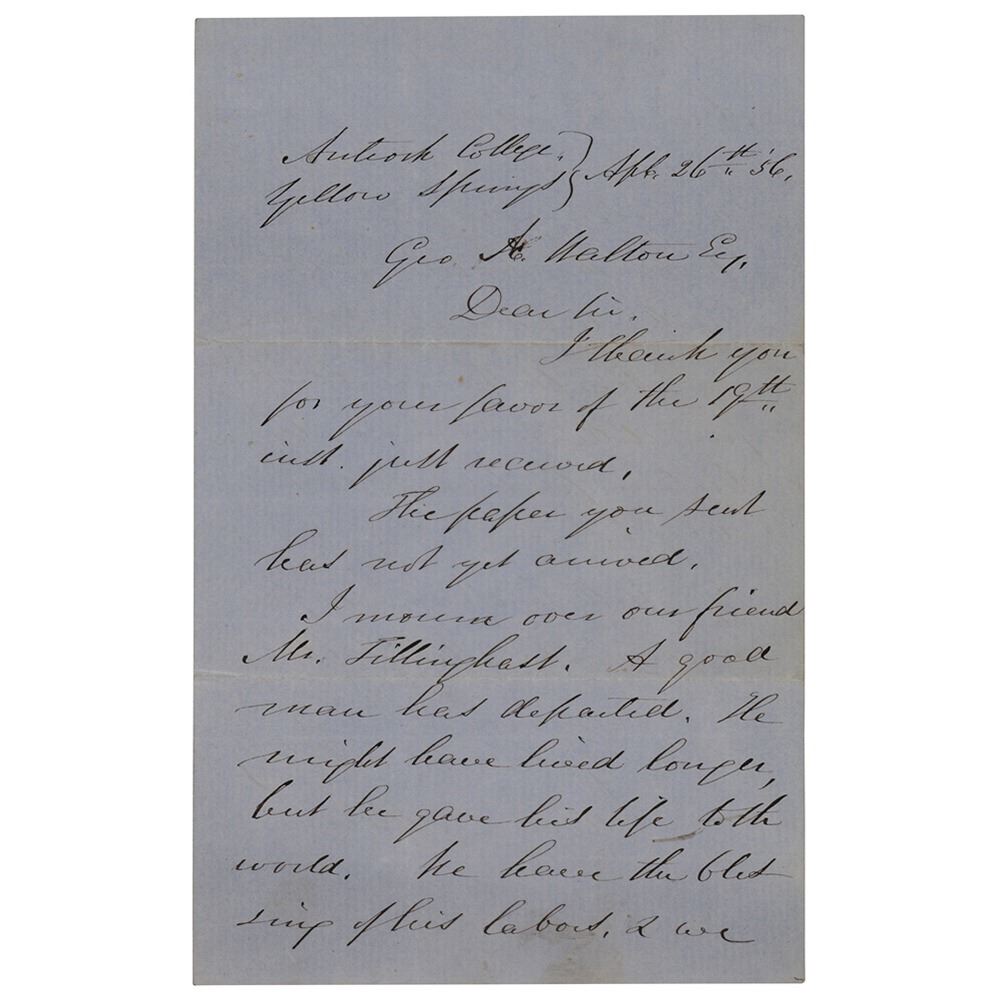 Antioch College, } Apl. 26th '56.
Yellow Springs }
Geo. A. Walton Esq,
Dear Sir,
I thank you
for your favor of the 19th
inst. just received,
The paper you sent
has not yet arrived.
I mourn over our friend
Mr. Tillinghast. A good
man has departed. He
might have lived longer,
but he gave his life to the
world. We have the bles
sing of his labors, & we